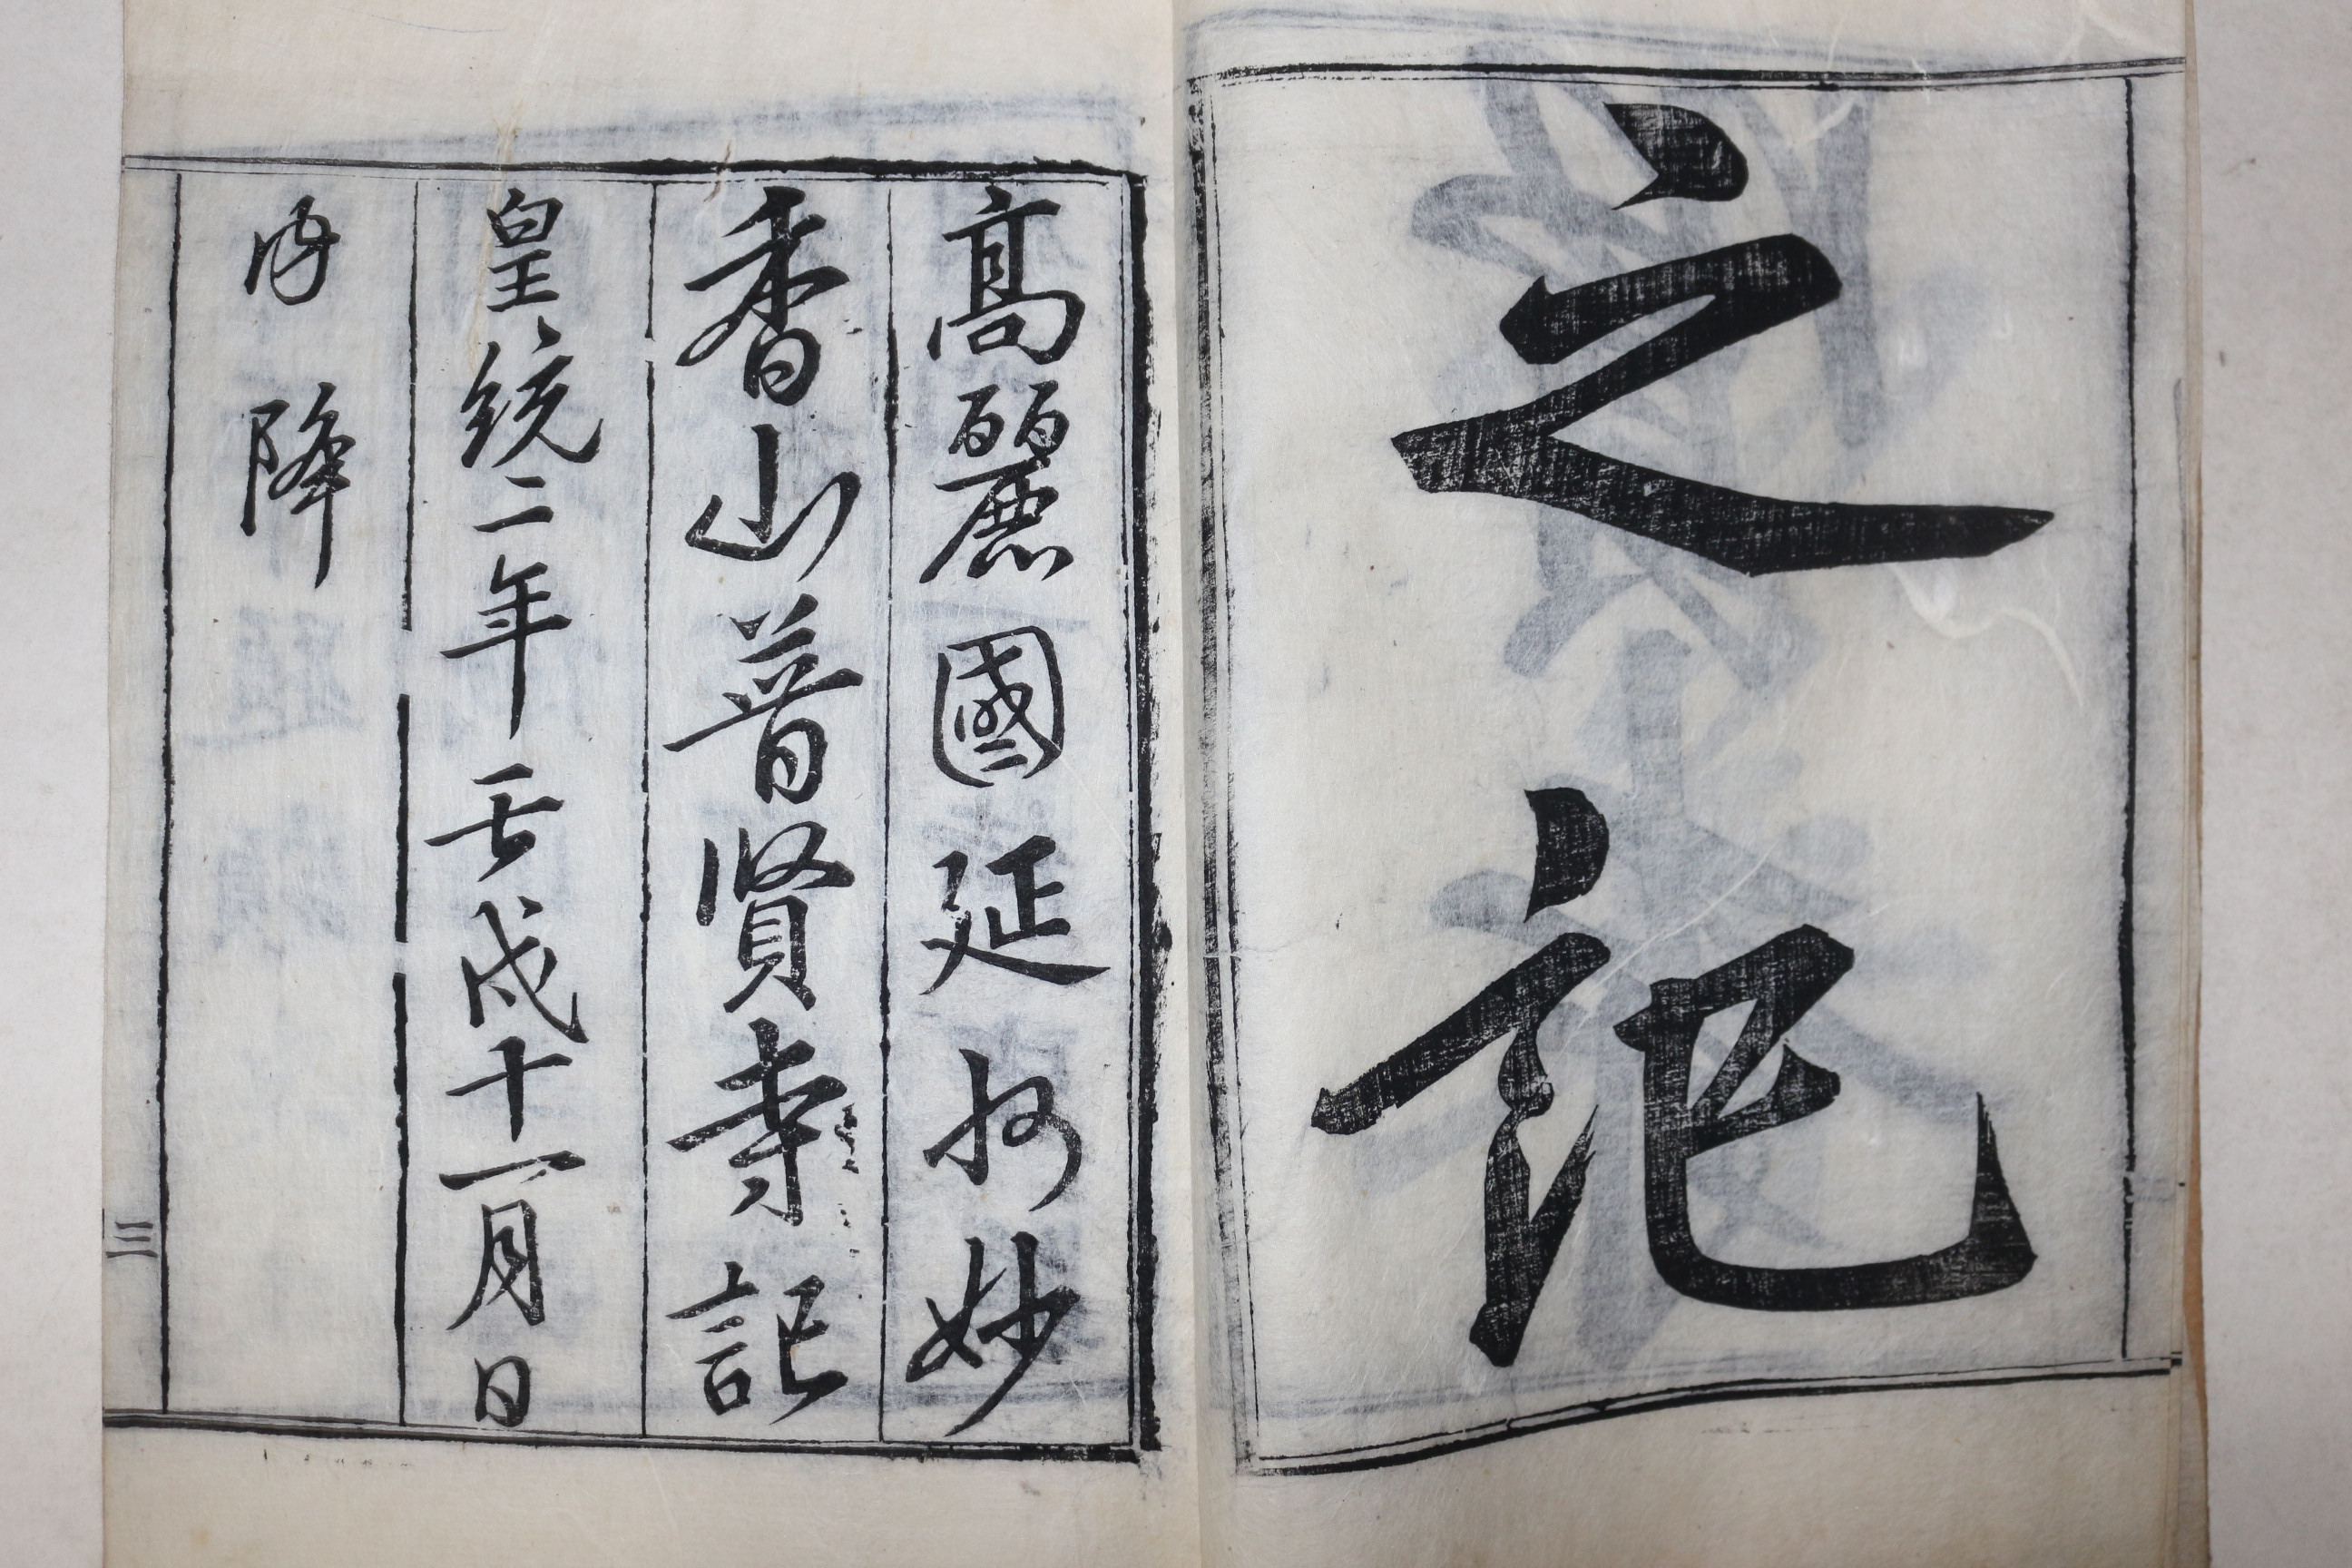 之記
高麗國延州妙
香山普賢寺記
皇統二年壬戌十一月日
內降
三